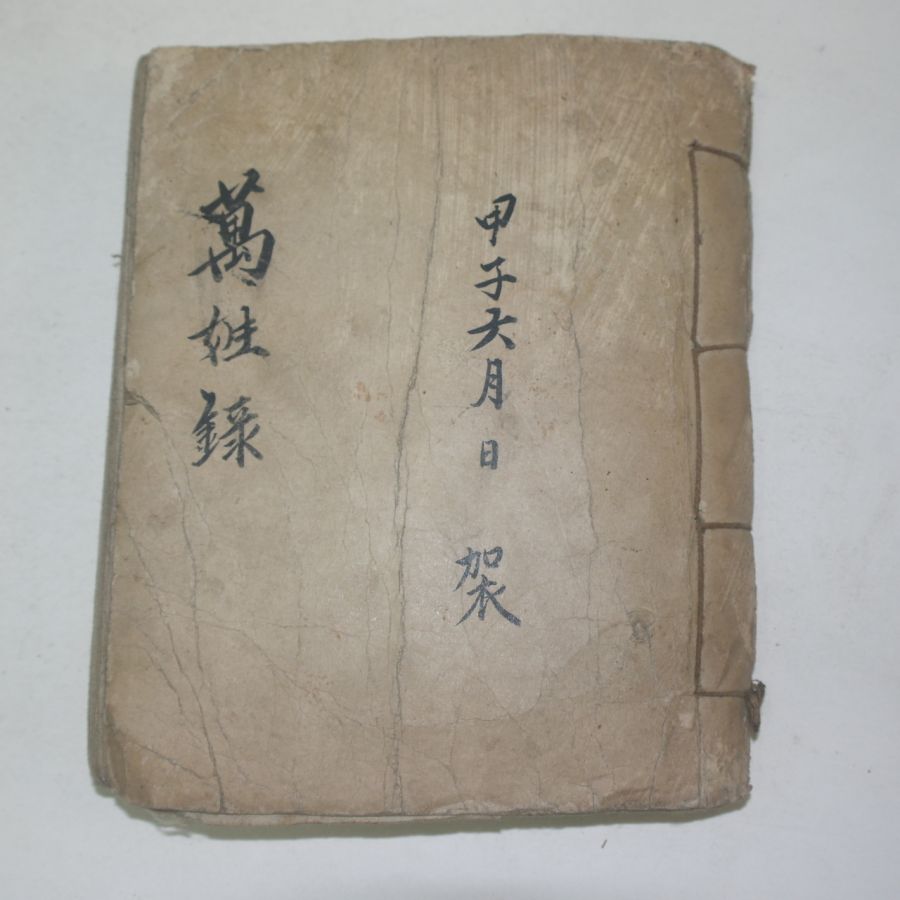 甲子六月 日 袈
萬姓錄